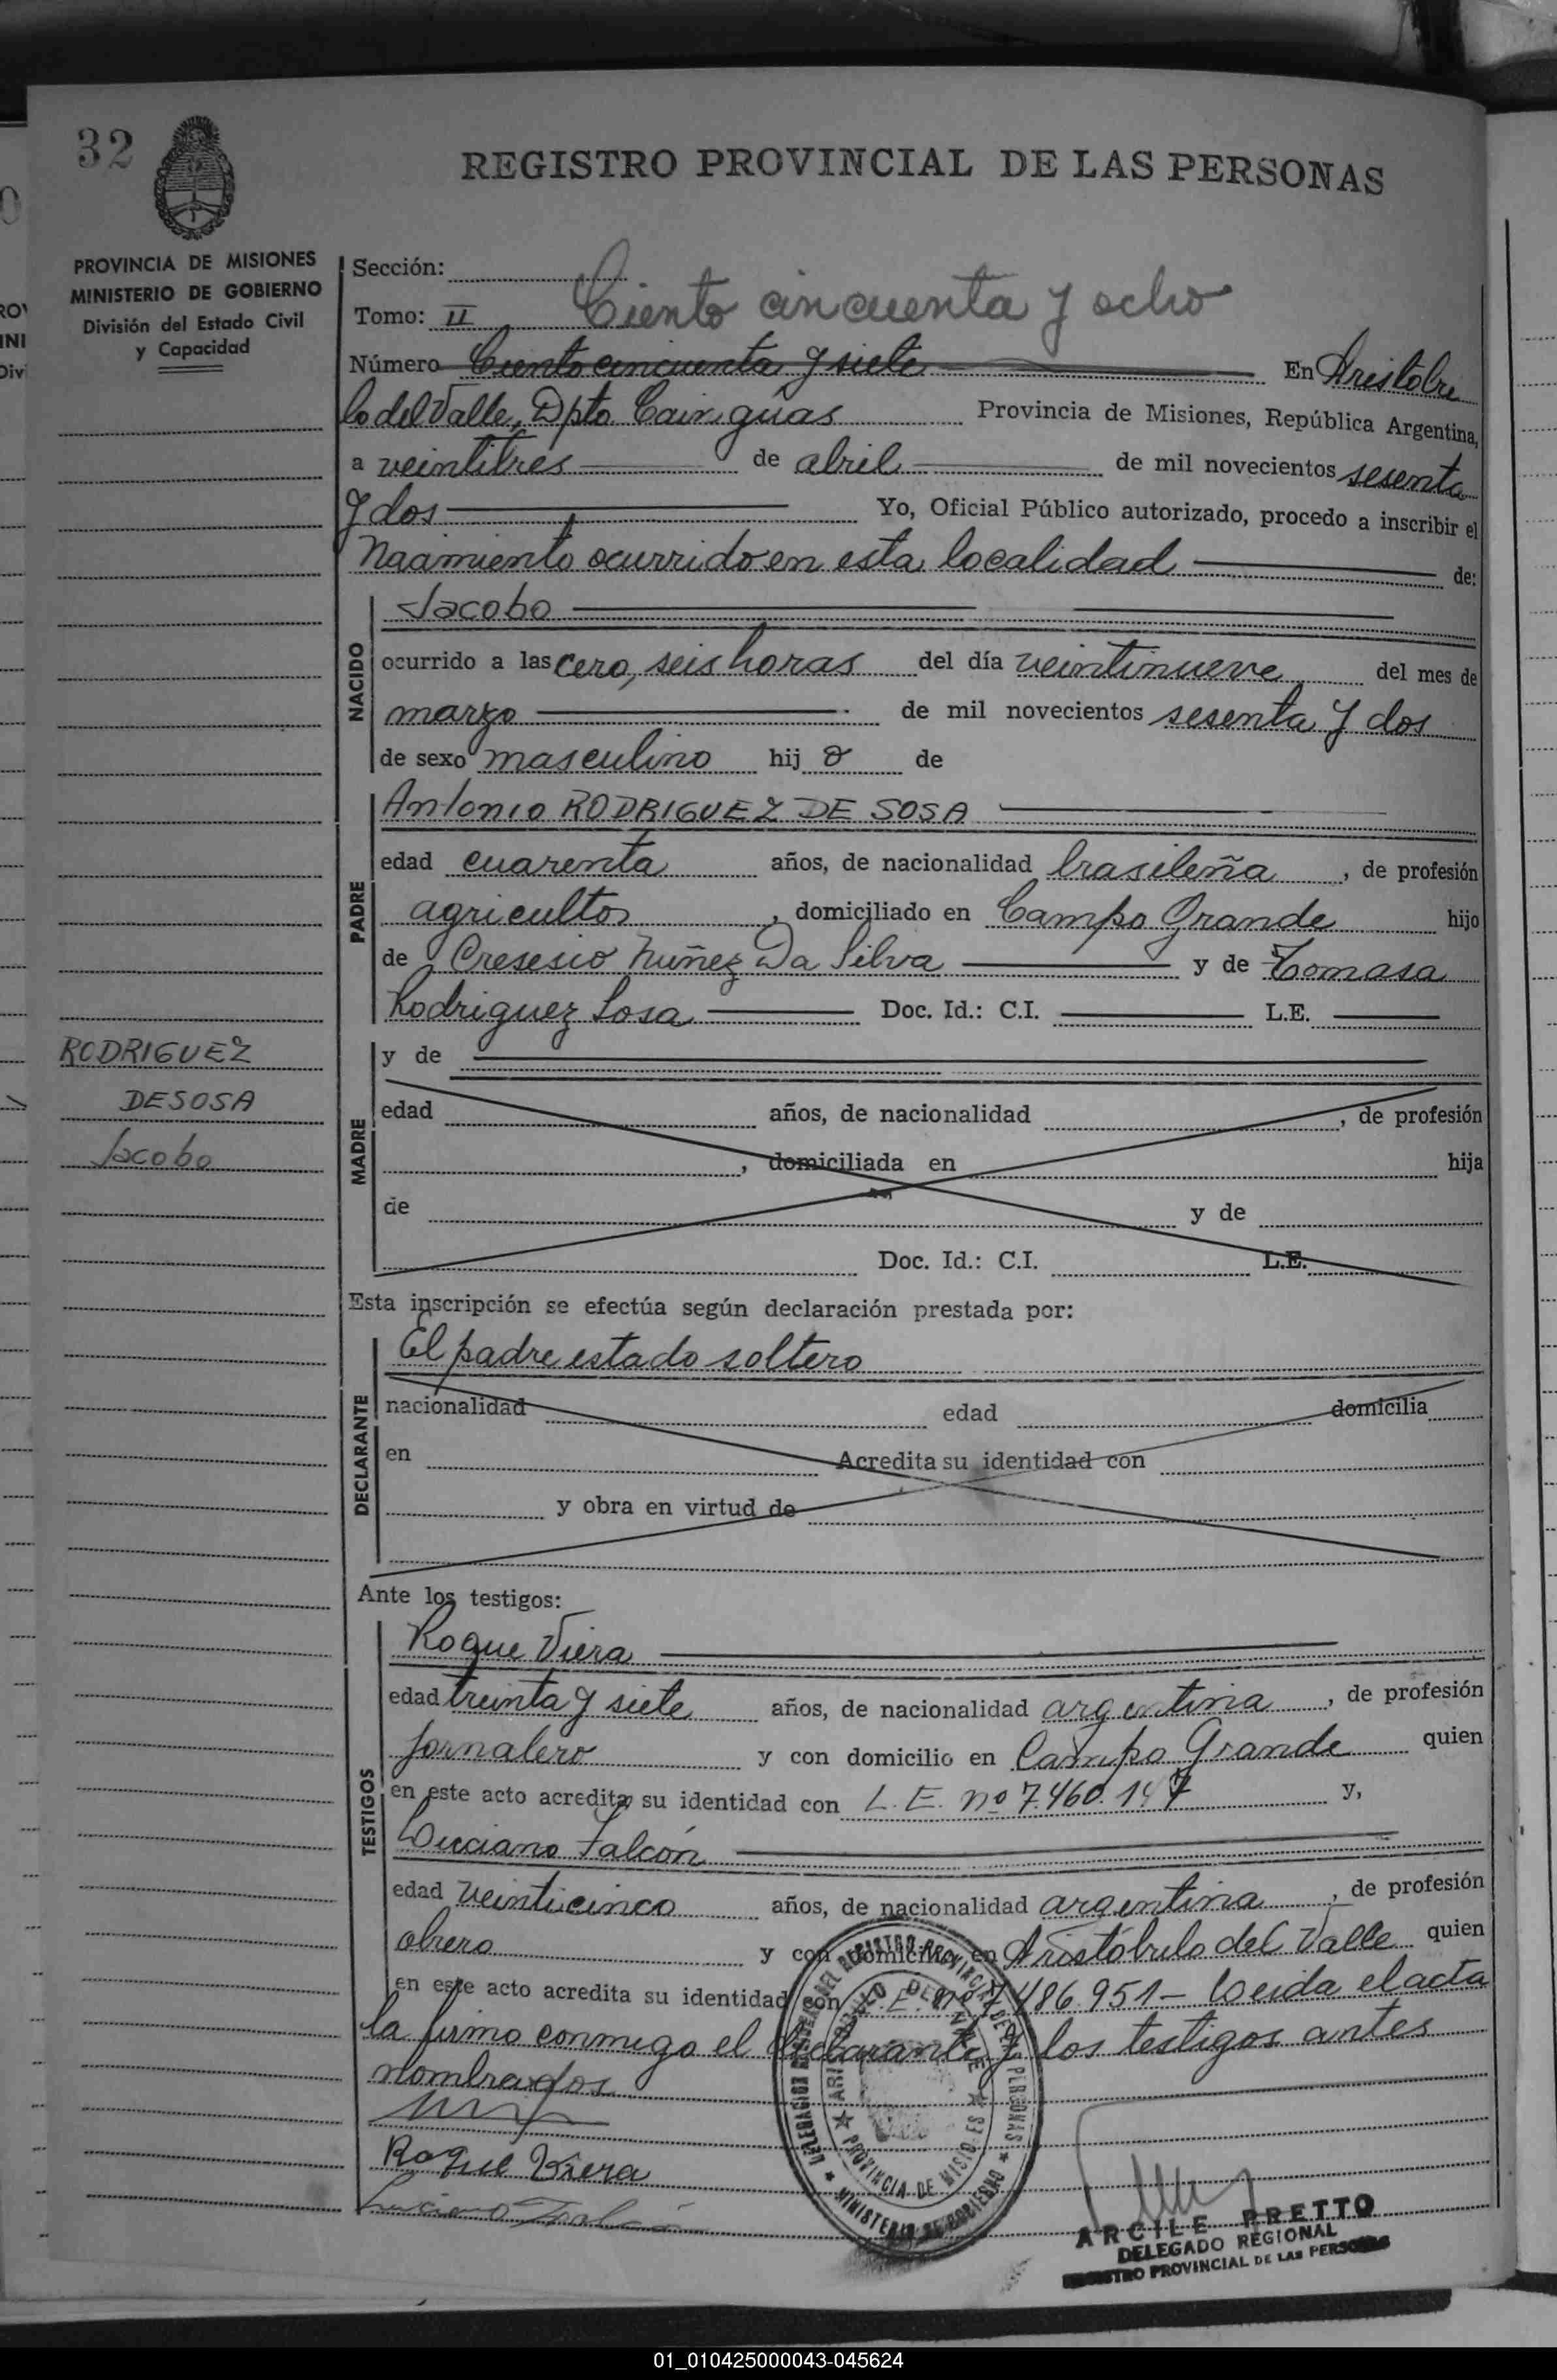 32
REGISTRO PROVINCIAL DE LAS PERSONAS
PROVINCIA DE MISIONES
MINISTERIO DE GOBIERNO
División del Estado Civil
y Capacidad
RODRIGUEZ
DE SOSA
Jacobo
Sección:
Tomo: II Ciento cincuenta y ocho
Número Ciento cincuenta y siete En Aristóbu
lo del Valle, Dpto. Cainguas Provincia de Misiones, República Argentina,
a veintitres de abril de mil novecientos sesenta
y dos Yo, Oficial Público autorizado, procedo a inscribir el
Nacimiento ocurrido en esta localidad de:
NACIDO
Jacobo
ocurrido a las cero, seis horas del día veintinueve del mes de
marzo de mil novecientos sesenta y dos
de sexo masculino hij o de
PADRE
Antonio RODRIGUEZ DE SOSA
edad cuarenta años, de nacionalidad brasileña, de profesión
agricultor, domiciliado en Campo Grande hijo
de Cresesio Nuñez Da Silva y de Tomasa
Rodriguez Sosa Doc. Id.: C.I. L.E.
MADRE
y de
edad años, de nacionalidad , de profesión
, domiciliada en hija
de y de
Doc. Id.: C.I. L.E.
Esta inscripción se efectúa según declaración prestada por:
DECLARANTE
El padre estado soltero
nacionalidad edad domicilia
en Acredita su identidad con
y obra en virtud de
Ante los testigos:
TESTIGOS
Roque Viera
edad treinta y siete años, de nacionalidad argentina, de profesión
jornalero y con domicilio en Campo Grande quien
en este acto acredita su identidad con L.E. nº 7.460.147 y,
Luciano Falcón
edad veinticinco años, de nacionalidad argentina, de profesión
obrero y con domicilio en Aristóbulo del Valle quien
en este acto acredita su identidad con L.E. nº 7.486.951- Leida el acta
la firma conmigo el declarante y los testigos antes
nombrados
Roque Viera
Luciano Falcón
DELEGACION REGIONAL DEL REGISTRO PROVINCIAL DE LAS PERSONAS
ARISTOBULO DEL VALLE
PROVINCIA DE MISIONES
MINISTERIO DE GOBIERNO
ARCILE PRETTO
DELEGADO REGIONAL
REGISTRO PROVINCIAL DE LAS PERSONAS
01_010425000043-045624